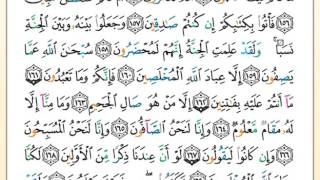 ١٥٦ فَأْتُوا۟ بِكِتَٰبِكُمْ إِن كُنتُمْ صَٰدِقِينَ ١٥٧ وَجَعَلُوا۟ بَيْنَهُۥ وَبَيْنَ ٱلْجِنَّةِ
نَسَبًا ۚ وَلَقَدْ عَلِمَتِ ٱلْجِنَّةُ إِنَّهُمْ لَمُحْضَرُونَ ١٥٨ سُبْحَٰنَ ٱللَّهِ عَمَّا
يَصِفُونَ ١٥٩ إِلَّا عِبَادَ ٱللَّهِ ٱلْمُخْلَصِينَ ١٦٠ فَإِنَّكُمْ وَمَا تَعْبُدُونَ
١٦١ مَآ أَنتُمْ عَلَيْهِ بِفَٰتِنِينَ ١٦٢ إِلَّا مَنْ هُوَ صَالِ ٱلْجَحِيمِ ١٦٣ وَمَا مِنَّآ إِلَّا
لَهُۥ مَقَامٌ مَّعْلُومٌ ١٦٤ وَإِنَّا لَنَحْنُ ٱلصَّآفُّونَ ١٦٥ وَإِنَّا لَنَحْنُ ٱلْمُسَبِّحُونَ
١٦٦ وَإِن كَانُوا۟ لَيَقُولُونَ ١٦٧ لَوْ أَنَّ عِندَنَا ذِكْرًا مِّنَ ٱلْأَوَّلِينَ ١٦٨ لَكُنَّا